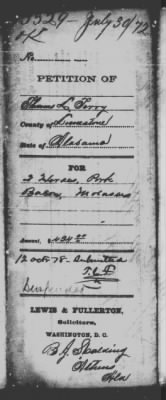 8529 - July 30/72
No.
PETITION OF
Thomas L. Terry
County of Limestone
State of Alabama
FOR
2 Horses, Pork
Bacon, Molasses
Amount, $424.00
12 Oct 78. Submitted
Suspended
LEWIS & FULLERTON,
Solicitors,
WASHINGTON, D. C.
B. J. Spalding
Athens
Ala